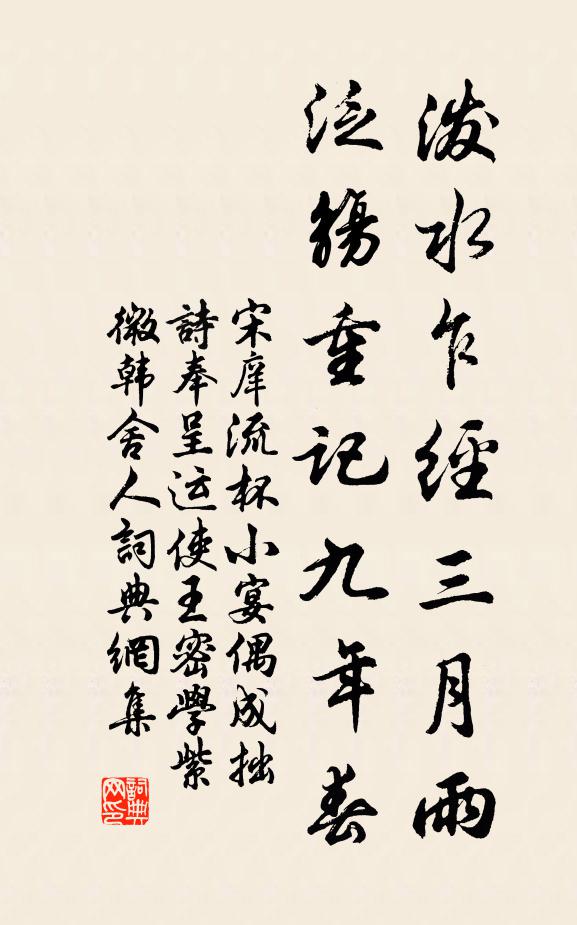 潑水乍經三月雨
泛觴重記九年春
宋庠流杯小宴偶成拙
詩奉呈运使王密學紫
微韩舍人詞典網集
詞典
网印